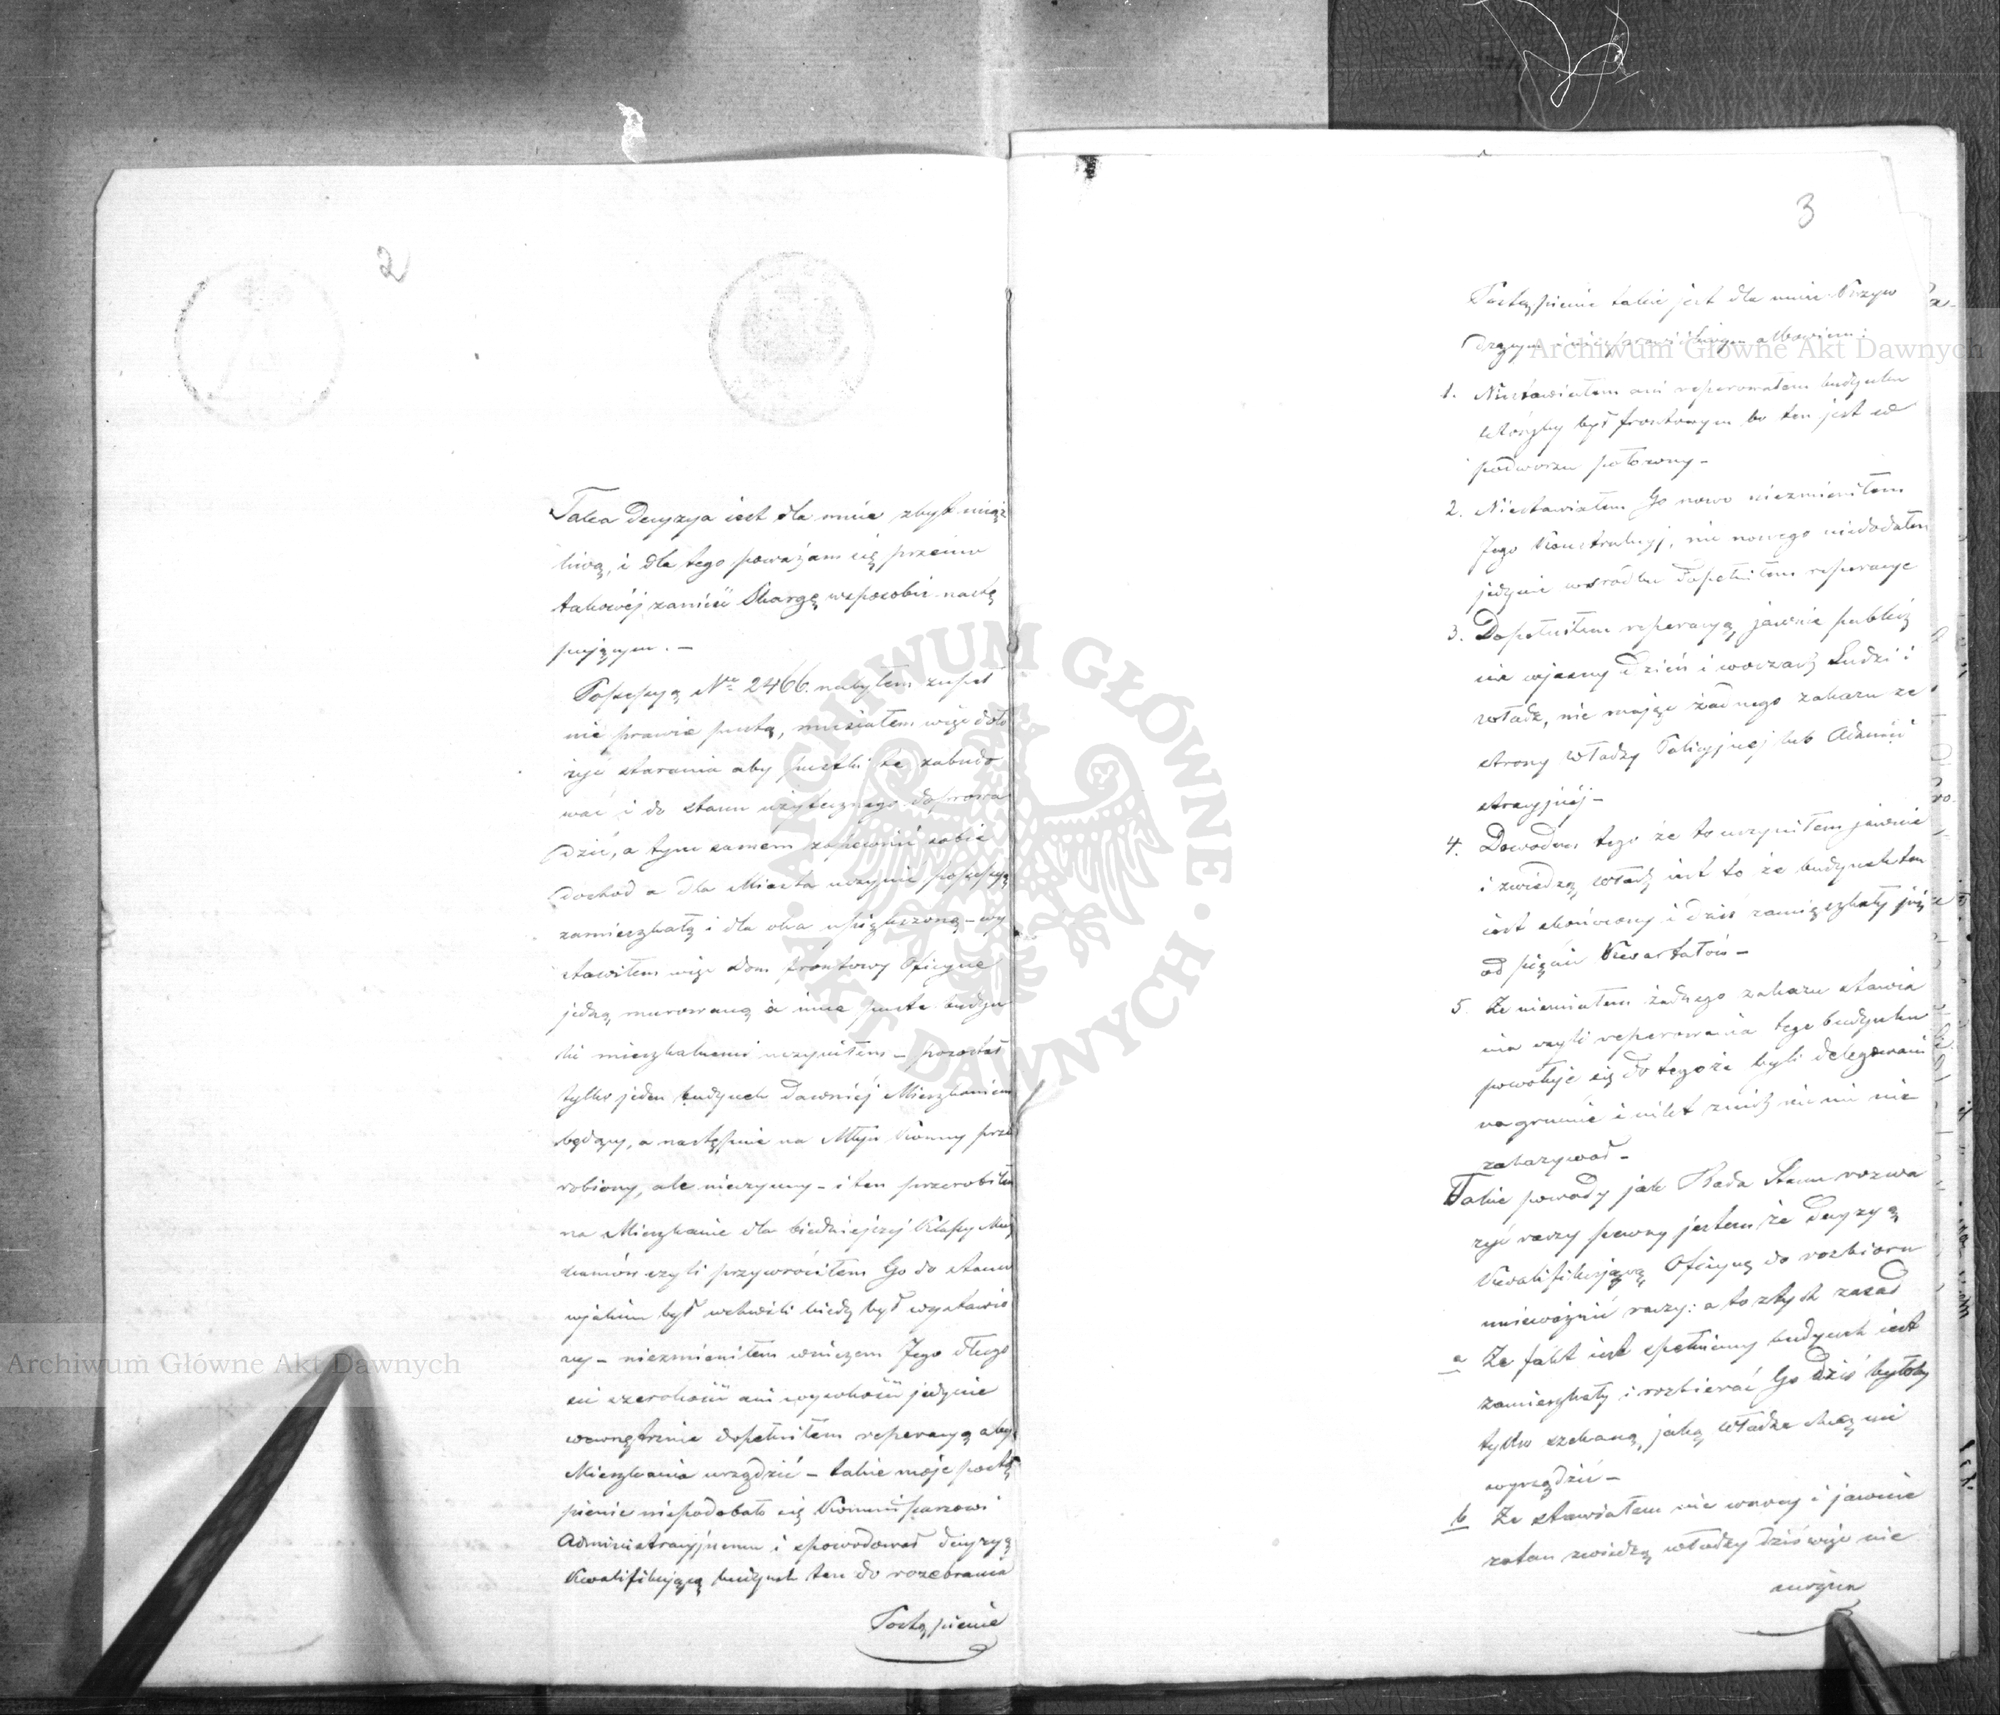 2
Taka Decyzya iest dla mnie zbyt uciąż
liwą, i dla tego poważam się przeciw
takowéj zanieść Skargę wsposobie nastę
pującym. —
Possessyą Nro 2466. nabyłem zupeł
nie prawie pustą, musiałem więc doło
żyć starania aby pustki te zabudo
wać i do stanu użytecznego doprowa
dzić, a tym samem zapewnić sobie
dochod a dla Miasta uczynić possessyą
zamieszkałą i dla oka upiękrzoną — wy
stawiłem więc dom frontowy Oficynę
jedną murowaną a inne puste budyn
ki mieszkalnemi uczyniłem — pozostał
tylko jeden budynek dawniéj Mieszkaniem
będący, a następnie na Młyn Konny prze
robiony, ale nieczynny — i ten przerobiłem
na Mieszkanie dla biedniejszej Klassy Miesz
kanców czyli przywróciłem Go do stanu
wjakim był wchwili kiedy był wystawio
ny — niezmieniłem wniczem Jego długo
ści szerokości ani wysokości jedynie
wewnętrznie dopełniłem reperacyą aby
Mieszkania urządzić — takie moje postą
pienie niepodobało się Kommissarzowi
Administracyjnemu i spowodował decyzyą
Kwalifikującą budynek ten do rozebrania
Postąpienie
3
Postąpienie takie jest dla mnie Krzyw
dzącym i niesprawiedliwym albowiem:
1. Niestawiałem ani reperowałem budynku
któryby był frontowym bo ten jest w
podworzu położony —
2. Niestawiałem Go nowo niezmieniłem
Jego Konstrukcyj, nic nowego niedodałem
jedynie wśrodku dopełniłem reperacye
3. Dopełniłem reperacyą jawnie publicz
nie wjasny dzień i woczach Ludzi i
władz, nie mając żadnego zakazu ze
strony Władzy Policyjnej lub Admini
stracyjnéj —
4. Dowodem tego że to uczyniłem jawnie
i zwiedzą władz iest to że budynek ten
iest skończony i dziś zamięszkały już
od pięciu Kwartałów —
5. Że niemiałem żadnego zakazu stawia
nia czyli reperowania tego budynku
powołuję się do tego że byli delegowani
na gruncie i nikt z nich nic mi nie
zakazywał —
Takie powody jak Rada Stanu rozwa
żyć raczy pewny jestem że decyzyą
Kwalifikującą Oficynę do rozbioru
unieważnić raczy: a to ztych zasad
a Że fakt iest spełniony budynek iest
zamieszkały i rozbierać Go dziś byłoby
tylko szykaną, jaką władza chce mi
wyrządzić —
b Że stawiałem nie wnocy i jawnie
zatem zwiedzą władzy dziś więc nie
można
Archiwum Główne Akt Dawnych
Archiwum Główne Akt Dawnych
ARCHIWUM GŁÓWNE AKT DAWNYCH